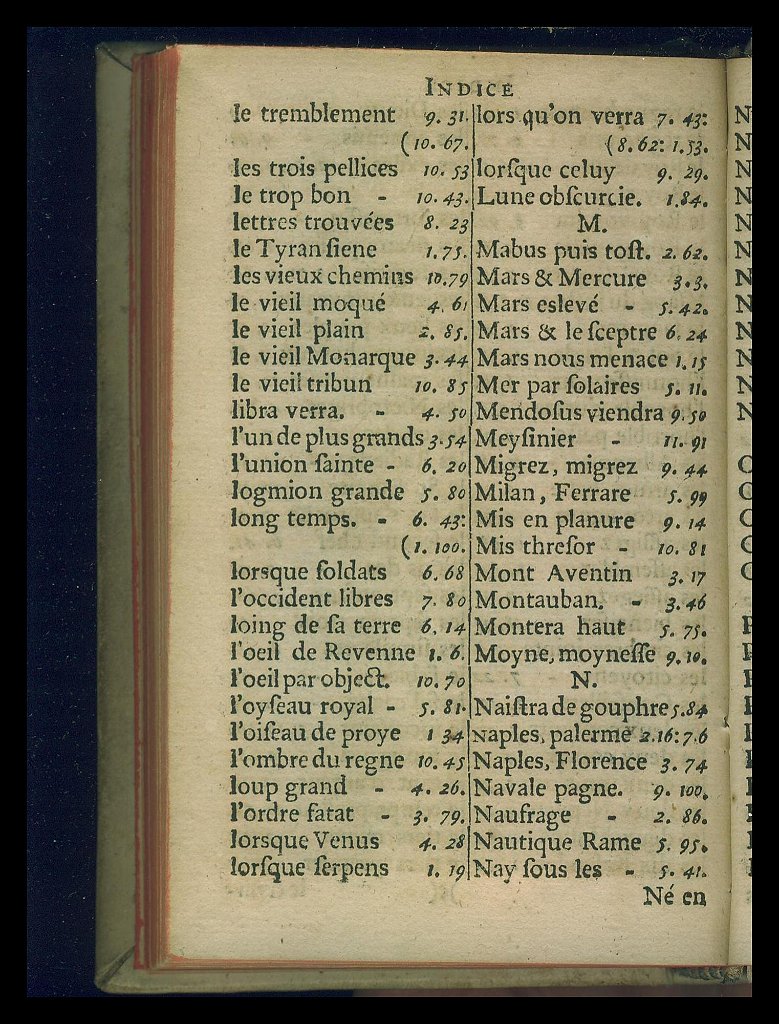 INDICE
le tremblement 9. 31.
(10. 67.
les trois pellices 10. 53
le trop bon - 10. 43.
lettres trouvées 8. 23
le Tyran ſiene 1. 75.
les vieux chemins 10.79
le vieil moqué 4. 61
le vieil plain 2. 85.
le vieil Monarque 3. 44
le vieil tribun 10. 85
libra verra. - 4. 50
l'un de plus grands 3. 54
l'union ſainte - 6. 20
logmion grande 5. 80
long temps. - 6. 43:
(1. 100.
lorsque ſoldats 6. 68
l'occident libres 7. 80
loing de ſa terre 6. 14
l'oeil de Revenne 1. 6.
l'oeil par object. 10. 70
l'oyſeau royal - 5. 81.
l'oiſeau de proye 1 34
l'ombre du regne 10. 45
loup grand - 4. 26.
l'ordre fatat - 3. 79.
lorsque Venus 4. 28
lorſque ſerpens 1. 19
lors qu'on verra 7. 43:
(8. 62: 1. 53.
lorſque celuy 9. 29.
Lune obſcurcie. 1.84.
M.
Mabus puis toſt. 2. 62.
Mars & Mercure 3. 3.
Mars eslevé - 5. 42.
Mars & le ſceptre 6. 24
Mars nous menace 1. 15
Mer par ſolaires 5. 11.
Mendoſus viendra 9. 50
Meyſinier - 11. 91
Migrez, migrez 9. 44
Milan, Ferrare 5. 99
Mis en planure 9. 14
Mis threſor - 10. 81
Mont Aventin 3. 17
Montauban. - 3. 46
Montera haut 5. 75.
Moyne, moyneſſe 9. 10.
N.
Naiſtra de gouphre 5. 84
Naples, palerme 2.16: 7.6
Naples, Florence 3. 74
Navale pagne. 9. 100.
Naufrage - 2. 86.
Nautique Rame 5. 95.
Nay ſous les - 5. 41.
Né en